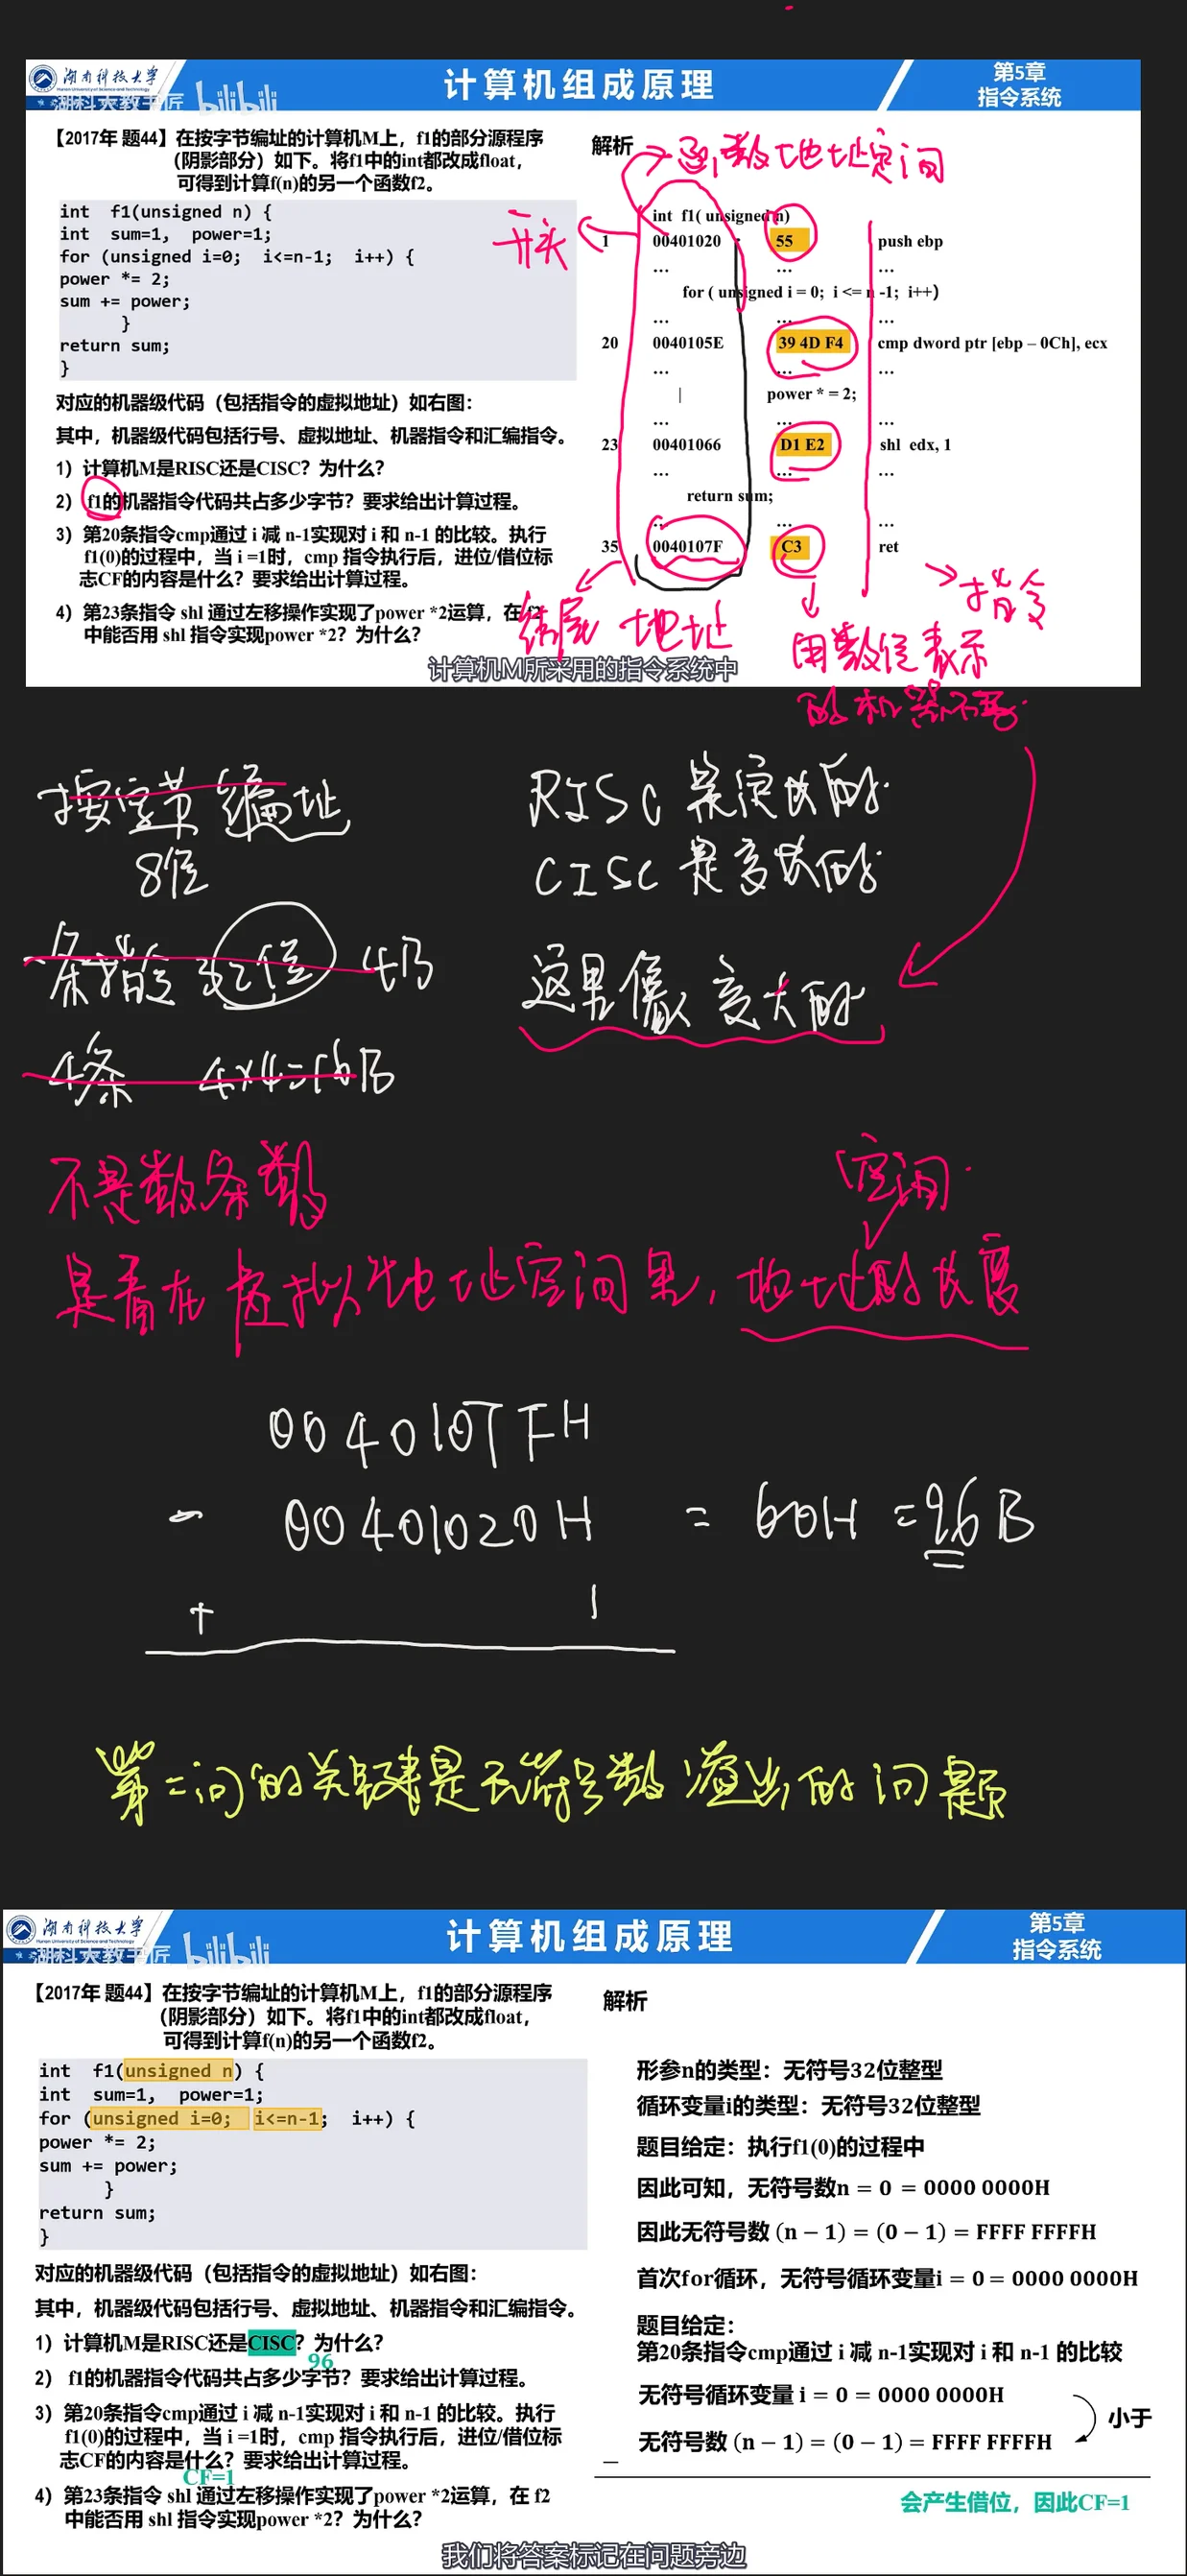 湖南科技大学
Hunan University of Science and Technology
湖科大教书匠 bilibili
计算机组成原理
第5章
指令系统
【2017年 题44】在按字节编址的计算机M上，f1的部分源程序
（阴影部分）如下。将f1中的int都改成float，
可得到计算f(n)的另一个函数f2。
int f1(unsigned n) {
int sum=1, power=1;
for (unsigned i=0; i<=n-1; i++) {
power *= 2;
sum += power;
}
return sum;
}
对应的机器级代码（包括指令的虚拟地址）如右图：
其中，机器级代码包括行号、虚拟地址、机器指令和汇编指令。
1）计算机M是RISC还是CISC？为什么？
2） f1的机器指令代码共占多少字节？要求给出计算过程。
3）第20条指令cmp通过 i 减 n-1实现对 i 和 n-1 的比较。执行
f1(0)的过程中，当 i =1时，cmp 指令执行后，进位/借位标
志CF的内容是什么？要求给出计算过程。
4）第23条指令 shl 通过左移操作实现了power *2运算，在 f2
中能否用 shl 指令实现power *2？为什么？
解析
地址空间
开头
int f1( unsigned n)
1 00401020 55 push ebp
... ... ...
for ( unsigned i = 0; i <= n -1; i++)
... ... ...
20 0040105E 39 4D F4 cmp dword ptr [ebp – 0Ch], ecx
... ... ...
power * = 2;
... ... ...
23 00401066 D1 E2 shl edx, 1
... ... ...
return sum;
... ... ...
35 0040107F C3 ret
结尾 地址
指令
用数值表示
计算机M所采用的指令系统中
按字节编址
8位
RISC 是定长的
CISC 是变长的
一条指令 32位 4B
这里像 变长的
4条 4×4=16B
不是数条数
空间
是看在虚拟地址空间里，地址的长度
0040107FH
- 00401020H = 60H = 96B
+ 1
第二问的关键是无符号数溢出的问题
湖南科技大学
Hunan University of Science and Technology
湖科大教书匠 bilibili
计算机组成原理
第5章
指令系统
【2017年 题44】在按字节编址的计算机M上，f1的部分源程序
（阴影部分）如下。将f1中的int都改成float，
可得到计算f(n)的另一个函数f2。
int f1(unsigned n) {
int sum=1, power=1;
for (unsigned i=0; i<=n-1; i++) {
power *= 2;
sum += power;
}
return sum;
}
对应的机器级代码（包括指令的虚拟地址）如右图：
其中，机器级代码包括行号、虚拟地址、机器指令和汇编指令。
1）计算机M是RISC还是CISC？为什么？
96
2） f1的机器指令代码共占多少字节？要求给出计算过程。
3）第20条指令cmp通过 i 减 n-1实现对 i 和 n-1 的比较。执行
f1(0)的过程中，当 i =1时，cmp 指令执行后，进位/借位标
志CF的内容是什么？要求给出计算过程。
CF=1
4）第23条指令 shl 通过左移操作实现了power *2运算，在 f2
中能否用 shl 指令实现power *2？为什么？
解析
形参n的类型：无符号32位整型
循环变量i的类型：无符号32位整型
题目给定：执行f1(0)的过程中
因此可知，无符号数n = 0 = 0000 0000H
因此无符号数 (n − 1) = (0 − 1) = FFFF FFFFH
首次for循环，无符号循环变量i = 0 = 0000 0000H
题目给定：
第20条指令cmp通过 i 减 n-1实现对 i 和 n-1 的比较
无符号循环变量 i = 0 = 0000 0000H
小于
− 无符号数 (n − 1) = (0 − 1) = FFFF FFFFH
会产生借位，因此CF=1
我们将答案标记在问题旁边